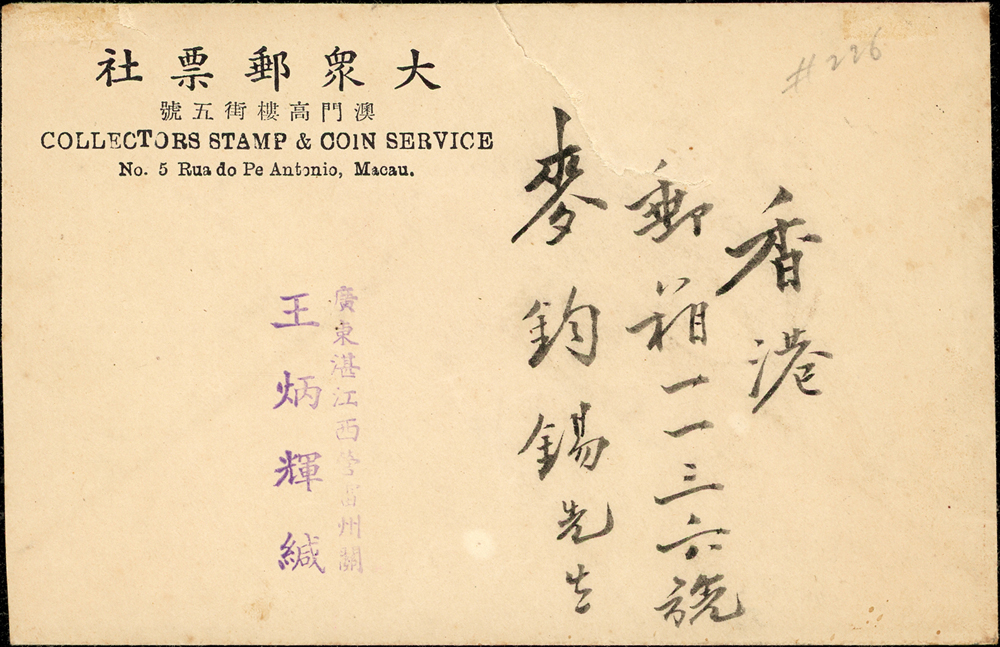 大眾郵票社
澳門高樓街五號
COLLECTORS STAMP & COIN SERVICE
No. 5 Rua do Pe Antonio, Macau.
#226
香港
郵箱一一三六號
麥鈞錫先生
廣東湛江西營雷州關
王炳輝緘